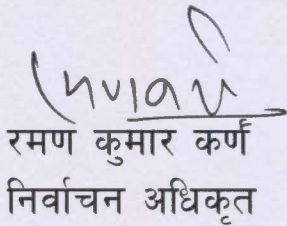 रमण कुमार कर्ण
निर्वाचन अधिकृत